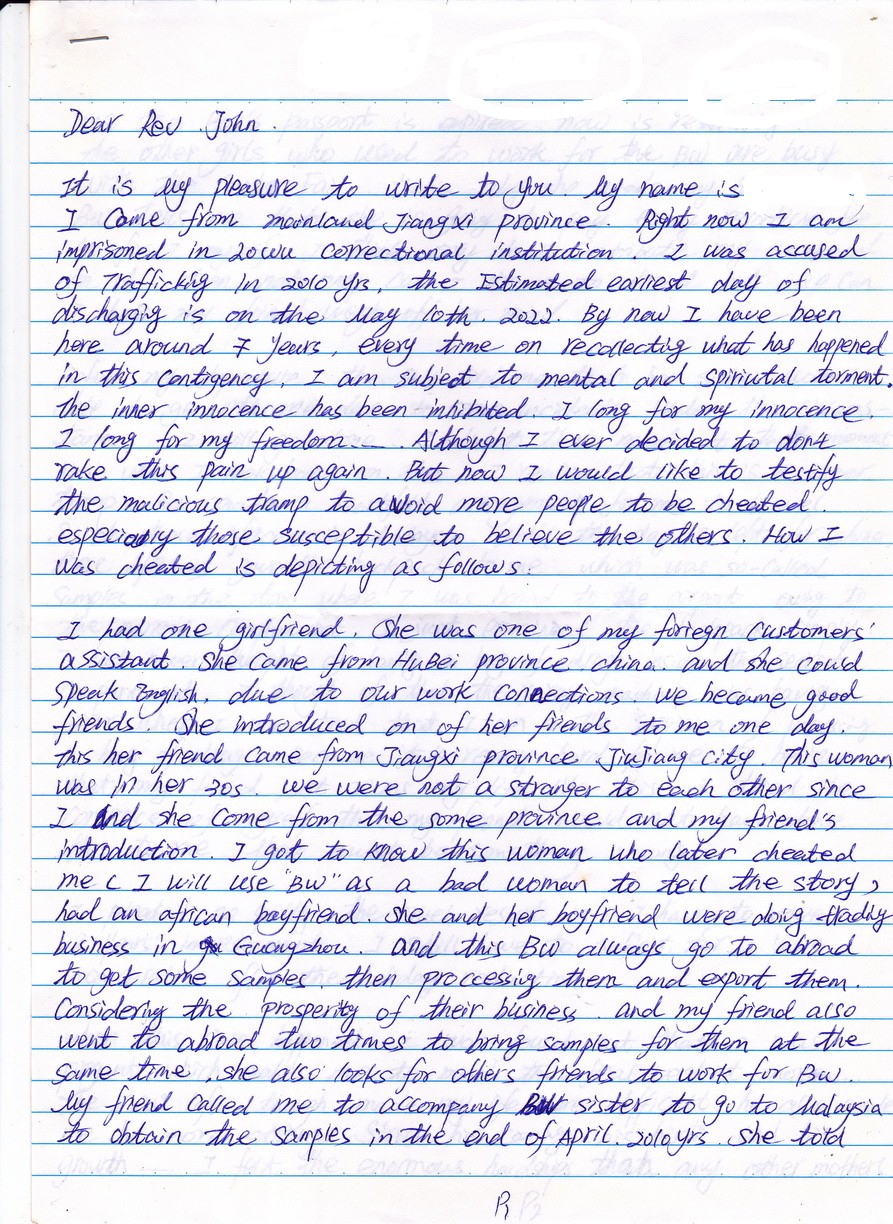 Dear Rev. John.
It is my pleasure to write to you. My name is
I Came from mainland Jiangxi province. Right now I am
imprisoned in Lowu Correctional institution. I was accused
of Trafficking In 2010 yrs, the Estimated earliest day of
dischargig is on the May 10th. 2022. By now I have been
here around 7 years, every time on recollectig what has happened
in this Contigency, I am subject to mental and spiriutal torment.
the inner innocence has been inhibited. I long for my innocence.
I long for my freedom..... Although I ever decided to don't
rake this pain up again. But now I would like to testify
the malicious tramp to avoid more people to be cheated.
especially those susceptible to believe the others. How I
was cheated is depicting as follows:
I had one girlfriend. She was one of my foriegn Customers'
assistant. she came from HuBei province china. and she could
speak English, due to our work connections we became good
friends. She introduced on of her friends to me one day.
this her friend came from Jiangxi province JiuJiang city. This woman
was in her 30s. we were not a stranger to each other since
I and she Come from the some province and my friend's
introduction. I got to know this woman who later cheated
me ( I will use "BW" as a bad woman to tell the story)
had an african boyfriend. She and her boyfriend were doig tradig
business in Guangzhou. and this BW always go to abroad
to get some samples then proccessing them and export them.
Considering the prosperity of their business. and my friend also
went to abroad two times to bring samples for them at the
same time. she also looks for others friends to work for BW.
My friend called me to accompany BW sister to go to Malaysia
to obtain the samples in the end of April. 2010 yrs. she told
P1